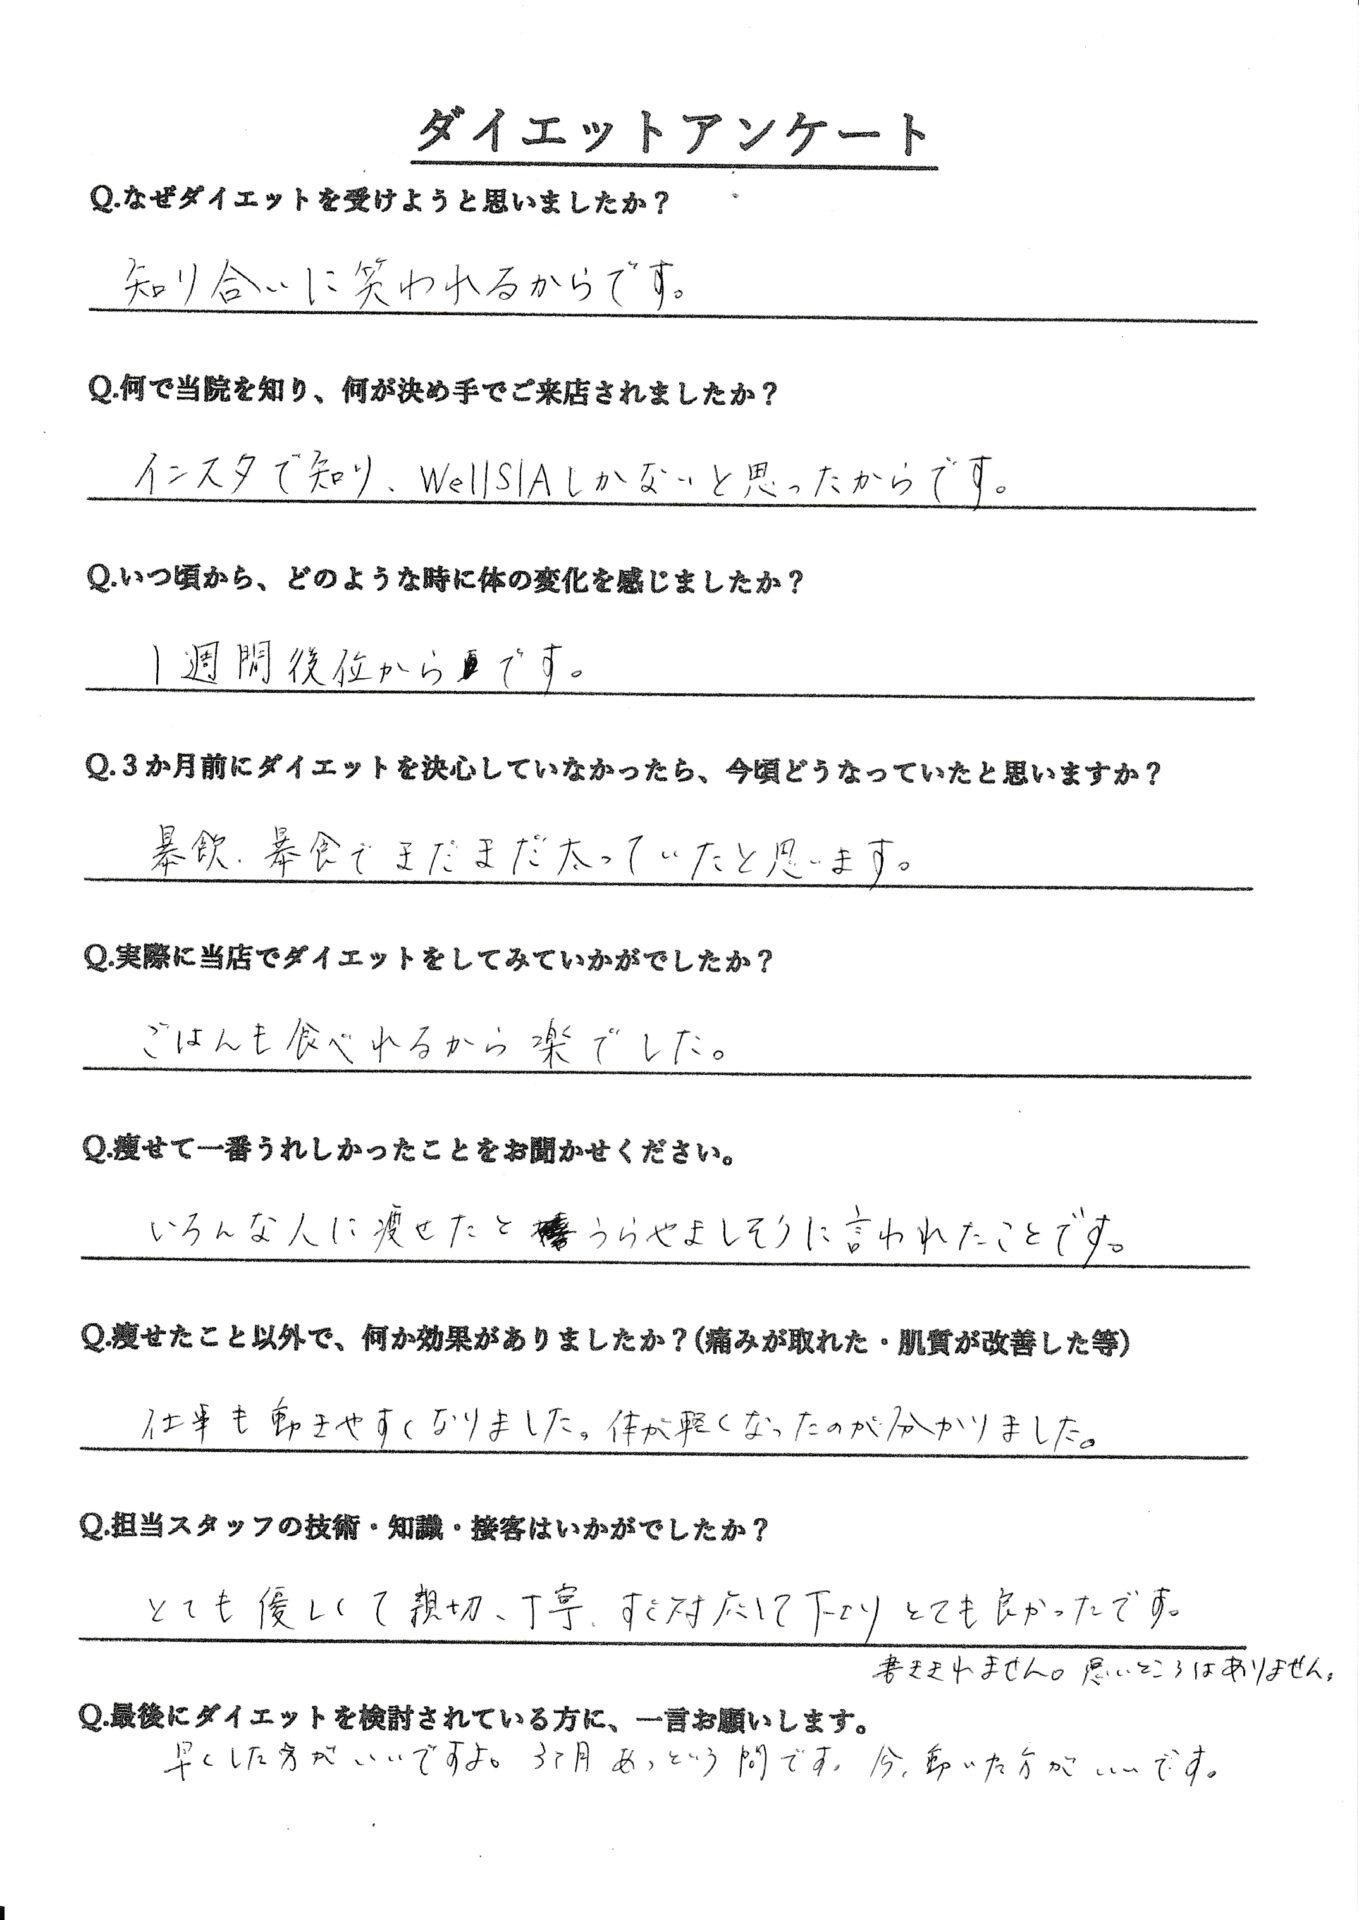 ダイエットアンケート
Q.なぜダイエットを受けようと思いましたか？
知り合いに笑われるからです。
Q.何で当院を知り、何が決め手でご来店されましたか？
インスタで知り、WellSIAしかないと思ったからです。
Q.いつ頃から、どのような時に体の変化を感じましたか？
1週間後位からです。
Q.３か月前にダイエットを決心していなかったら、今頃どうなっていたと思いますか？
暴飲、暴食でまだまだ太っていたと思います。
Q.実際に当店でダイエットをしてみていかがでしたか？
ごはんも食べれるから楽でした。
Q.痩せて一番うれしかったことをお聞かせください。
いろんな人に痩せたとうらやましそうに言われたことです。
Q.痩せたこと以外で、何か効果がありましたか？(痛みが取れた・肌質が改善した等)
仕事も動きやすくなりました。体が軽くなったのが分かりました。
Q.担当スタッフの技術・知識・接客はいかがでしたか？
とても優しくて親切、丁寧、すぐ対応して下さりとても良かったです。
書ききれません。悪いところはありません。
Q.最後にダイエットを検討されている方に、一言お願いします。
早くした方がいいですよ。3ヶ月あっという間です。今、動いた方がいいです。